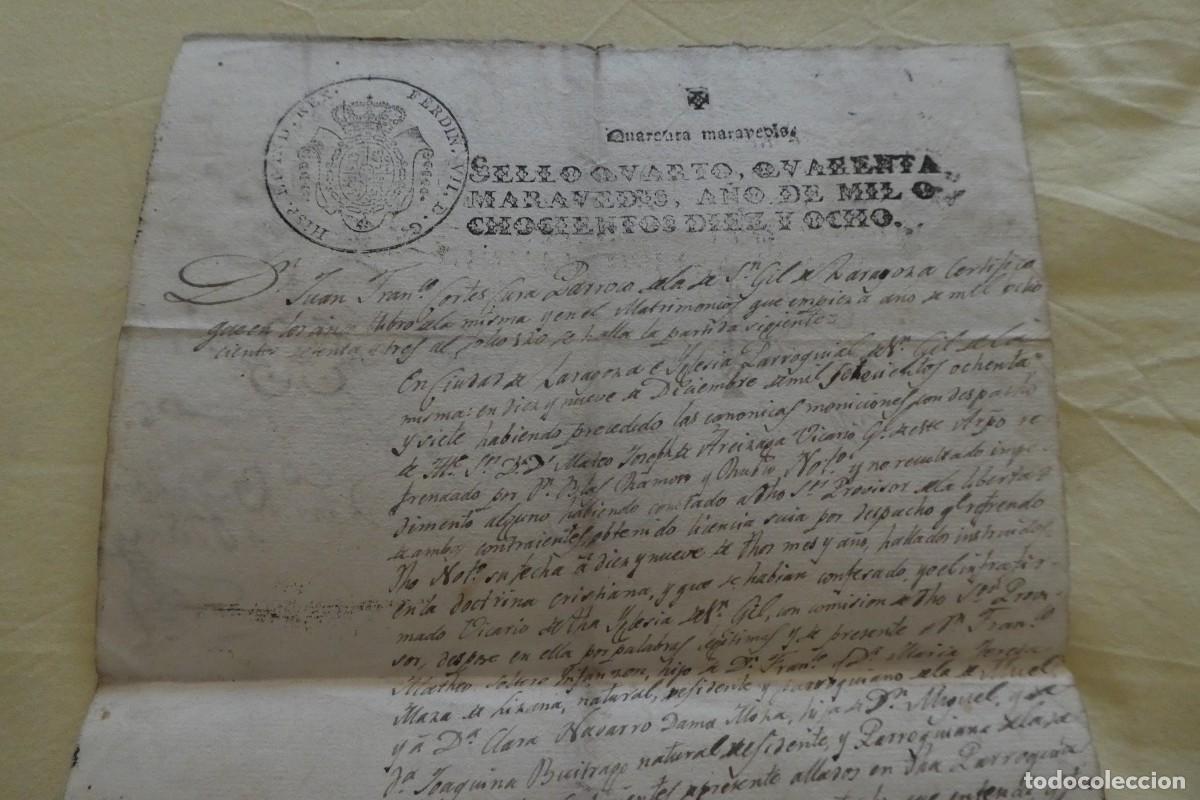 HISP. ET IND. REX. FERDIN. VII. D. G.
Quarenta maravedis.
SELLO QVARTO, QVARENTA
MARAVEDIS, AÑO DE MIL O
CHOCIENTOS DIEZ Y OCHO.
Dn. Juan Franco. Cortes Cura Parroco de la de Sn. Gil de Zaragoza Certifico
que en los cinco libros de la misma y en el Matrimonios que empieza año de mil
cientos setenta y tres al folio se halla la partida siguiente
En Ciudad de Zaragoza e Iglesia Parroquial de Sn. Gil de la
misma: en diez y nueve de Diciembre de mil setecientos ochenta
y siete habiendo precedido las canonicas moniciones con despacho
de Ille. Sr. Dn. Dr. Mateo Joseph de Areizaga Vicario Gl. de este Arpo. re
frendado por Dn. Blas Ramon y Rubio Noto. y no resultado inpe
dimento alguno habiendo constado a dho Sr. Provisor de la libertad
de ambos contraientes, obtenido licencia suia por despacho y refrendo
dho Noto. su fecha a diez y nueve de dhos mes y año, hallados instruidos
en la doctrina cristiana, y que se habian confesado, yo el infrafir-
mado Vicario de dha Iglesia de Sn. Gil, con comision de dho Sr. Provi-
sor, despose en ella por palabras legitimas y de presente a Dn. Franco.
Matheo soltero Infanzon, hijo de Dn. Franco. y Da. Maria Teresa
Maza de Lizana, natural, residente y parroquiano de la de Muel
y a Da. Clara Navarro Dama Moza, hija de Dn. Miguel, y a
Da. Joaquina Buitrago natural residente, y Parroquiana de la
presente allados en dha Parroquia
todocoleccion